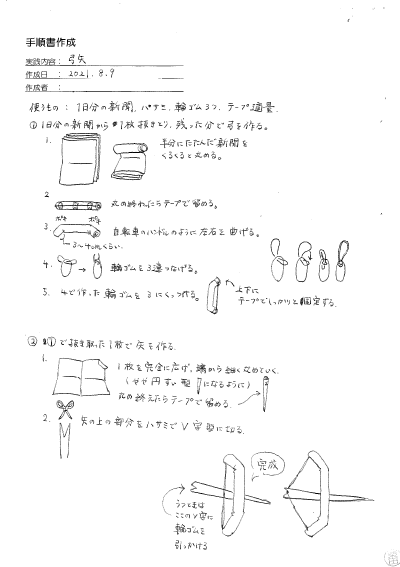 手順書作成
実践内容：弓矢
作成日：2021.8.9
作成者：
使うもの：1日分の新聞、ハサミ、輪ゴム3つ、テープ適量
① 1日分の新聞から1枚抜きとり、残った分で弓を作る。
1.
半分にたたんだ新聞を
くるくると丸める。
2
丸め終わったらテープで留める。
3.
自転車のハンドルのように左右を曲げる。
3〜4cmくらい
4.
輪ゴムを3連つなげる。
5. 4で作った輪ゴムを3にくっつける。
上下に
テープでしっかりと固定する。
② ①で抜き取った1枚で矢を作る。
1.
1枚を完全に広げ、端から細く丸めていく。
になるように)
丸め終えたらテープで留める。
2.
矢の上の部分をハサミでV字型に切る。
完成
うつときは
ここのV字に
輪ゴムを
引っかける